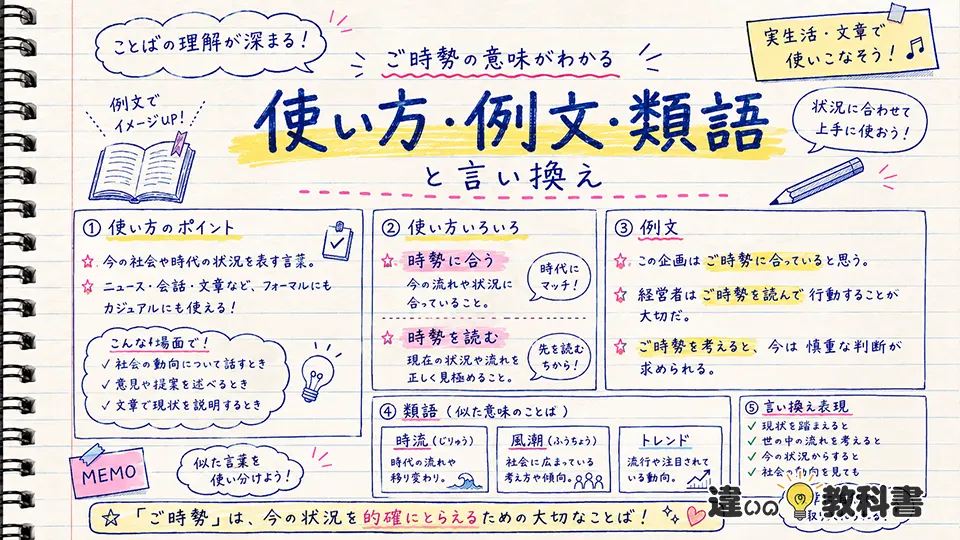 ことばの理解が深まる!
ご時勢の意味がわかる
実生活・文章で
使いこなそう!
例文で
イメージUP!
使い方・例文・類語
と言い換え
状況に合わせて
上手に使おう!
① 使い方のポイント
今の社会や時代の状況を表す言葉。
ニュース・会話・文章など、フォーマルにも
カジュアルにも使える!
こんな場面で!
社会の動向について話すとき
意見や提案を述べるとき
文章で現状を説明するとき
② 使い方いろいろ
時勢に合う
今の流れや状況に
合っていること。
時代に
マッチ!
時勢を読む
現在の状況や流れを
正しく見極めること。
先を読む
ちから!
③ 例文
この企画はご時勢に合っていると思う。
経営者はご時勢を読んで行動することが
大切だ。
ご時勢を考えると、今は慎重な判断が
求められる。
④ 類語(似た意味のことば)
時流(じりゅう)
時代の流れや
移り変わり。
風潮(ふうちょう)
社会に広まっている
考え方や傾向。
トレンド
流行や注目されて
いる動向。
⑤ 言い換え表現
現状を踏まえると
世の中の流れを考えると
今の状況からすると
社会の動向を見ても
MEMO
似た言葉を
使い分けよう!
「ご時勢」は、今の状況を的確にとらえるための大切なことば!
違いの教科書